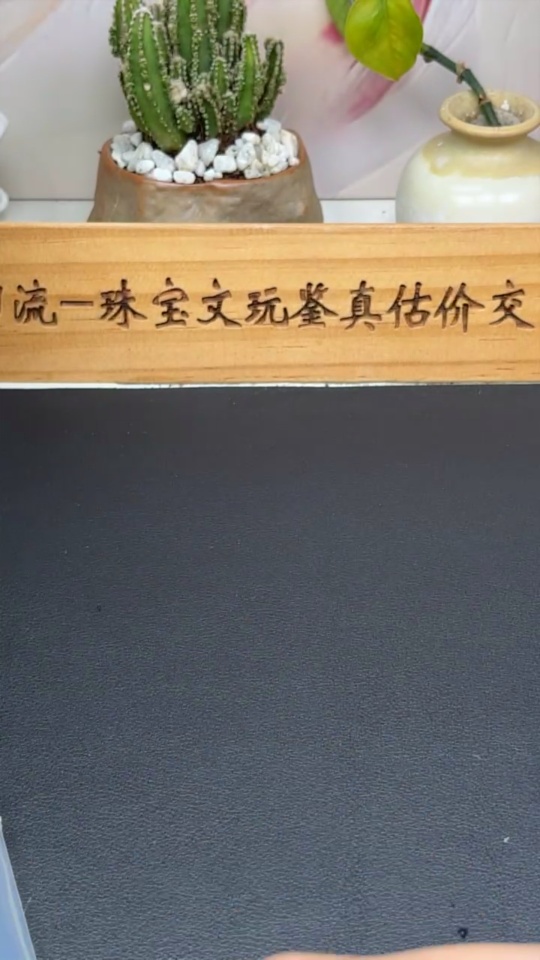 流一珠宝文玩鉴真估价交